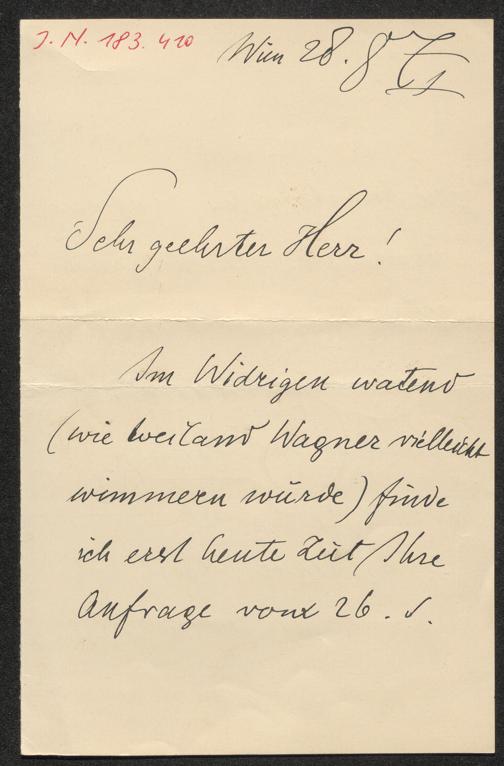 J. N. 183.410
Wien 28. 8
Sehr geehrter Herr!
Im Widrigen watend
(wie weiland Wagner vielleicht
wimmern würde) finde
ich erst heute Zeit Ihre
Anfrage vom 26. d.